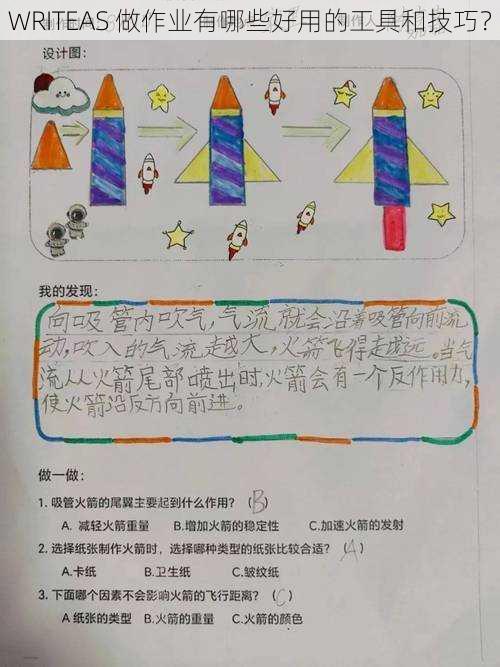 WRITEAS 做作业有哪些好用的工具和技巧？
设计图：
我的发现：
向吸管内吹气，气流就会沿着吸管向前流
动，吹入的气流越大，火箭飞得走越远。当气
流从从火箭尾部喷出时，火箭会有一个反作用力，
使火箭沿反方向前进。
做一做：
1. 吸管火箭的尾翼主要起到什么作用？（B）
A. 减轻火箭重量 B.增加火箭的稳定性 C.加速火箭的发射
2. 选择纸张制作火箭时，选择哪种类型的纸张比较合适？（A）
A.卡纸 B.卫生纸 C.皱纹纸
3. 下面哪个因素不会影响火箭的飞行距离？（C）
A 纸张的类型 B.火箭的重量 C.火箭的颜色